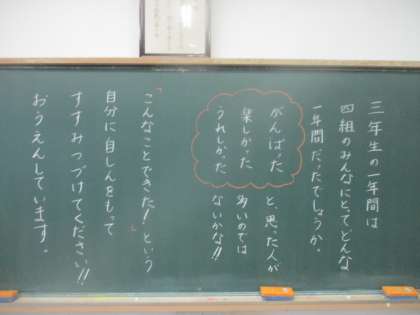 三年生の一年間は
四組のみんなにとってどんな
一年間だったでしょうか。
がんばった
楽しかった
うれしかった
と、思った人が
多いのでは
ないかな!!
「こんなことできた!」という
自分に自しんをもって
すすみつづけてください!!
おうえんしています。